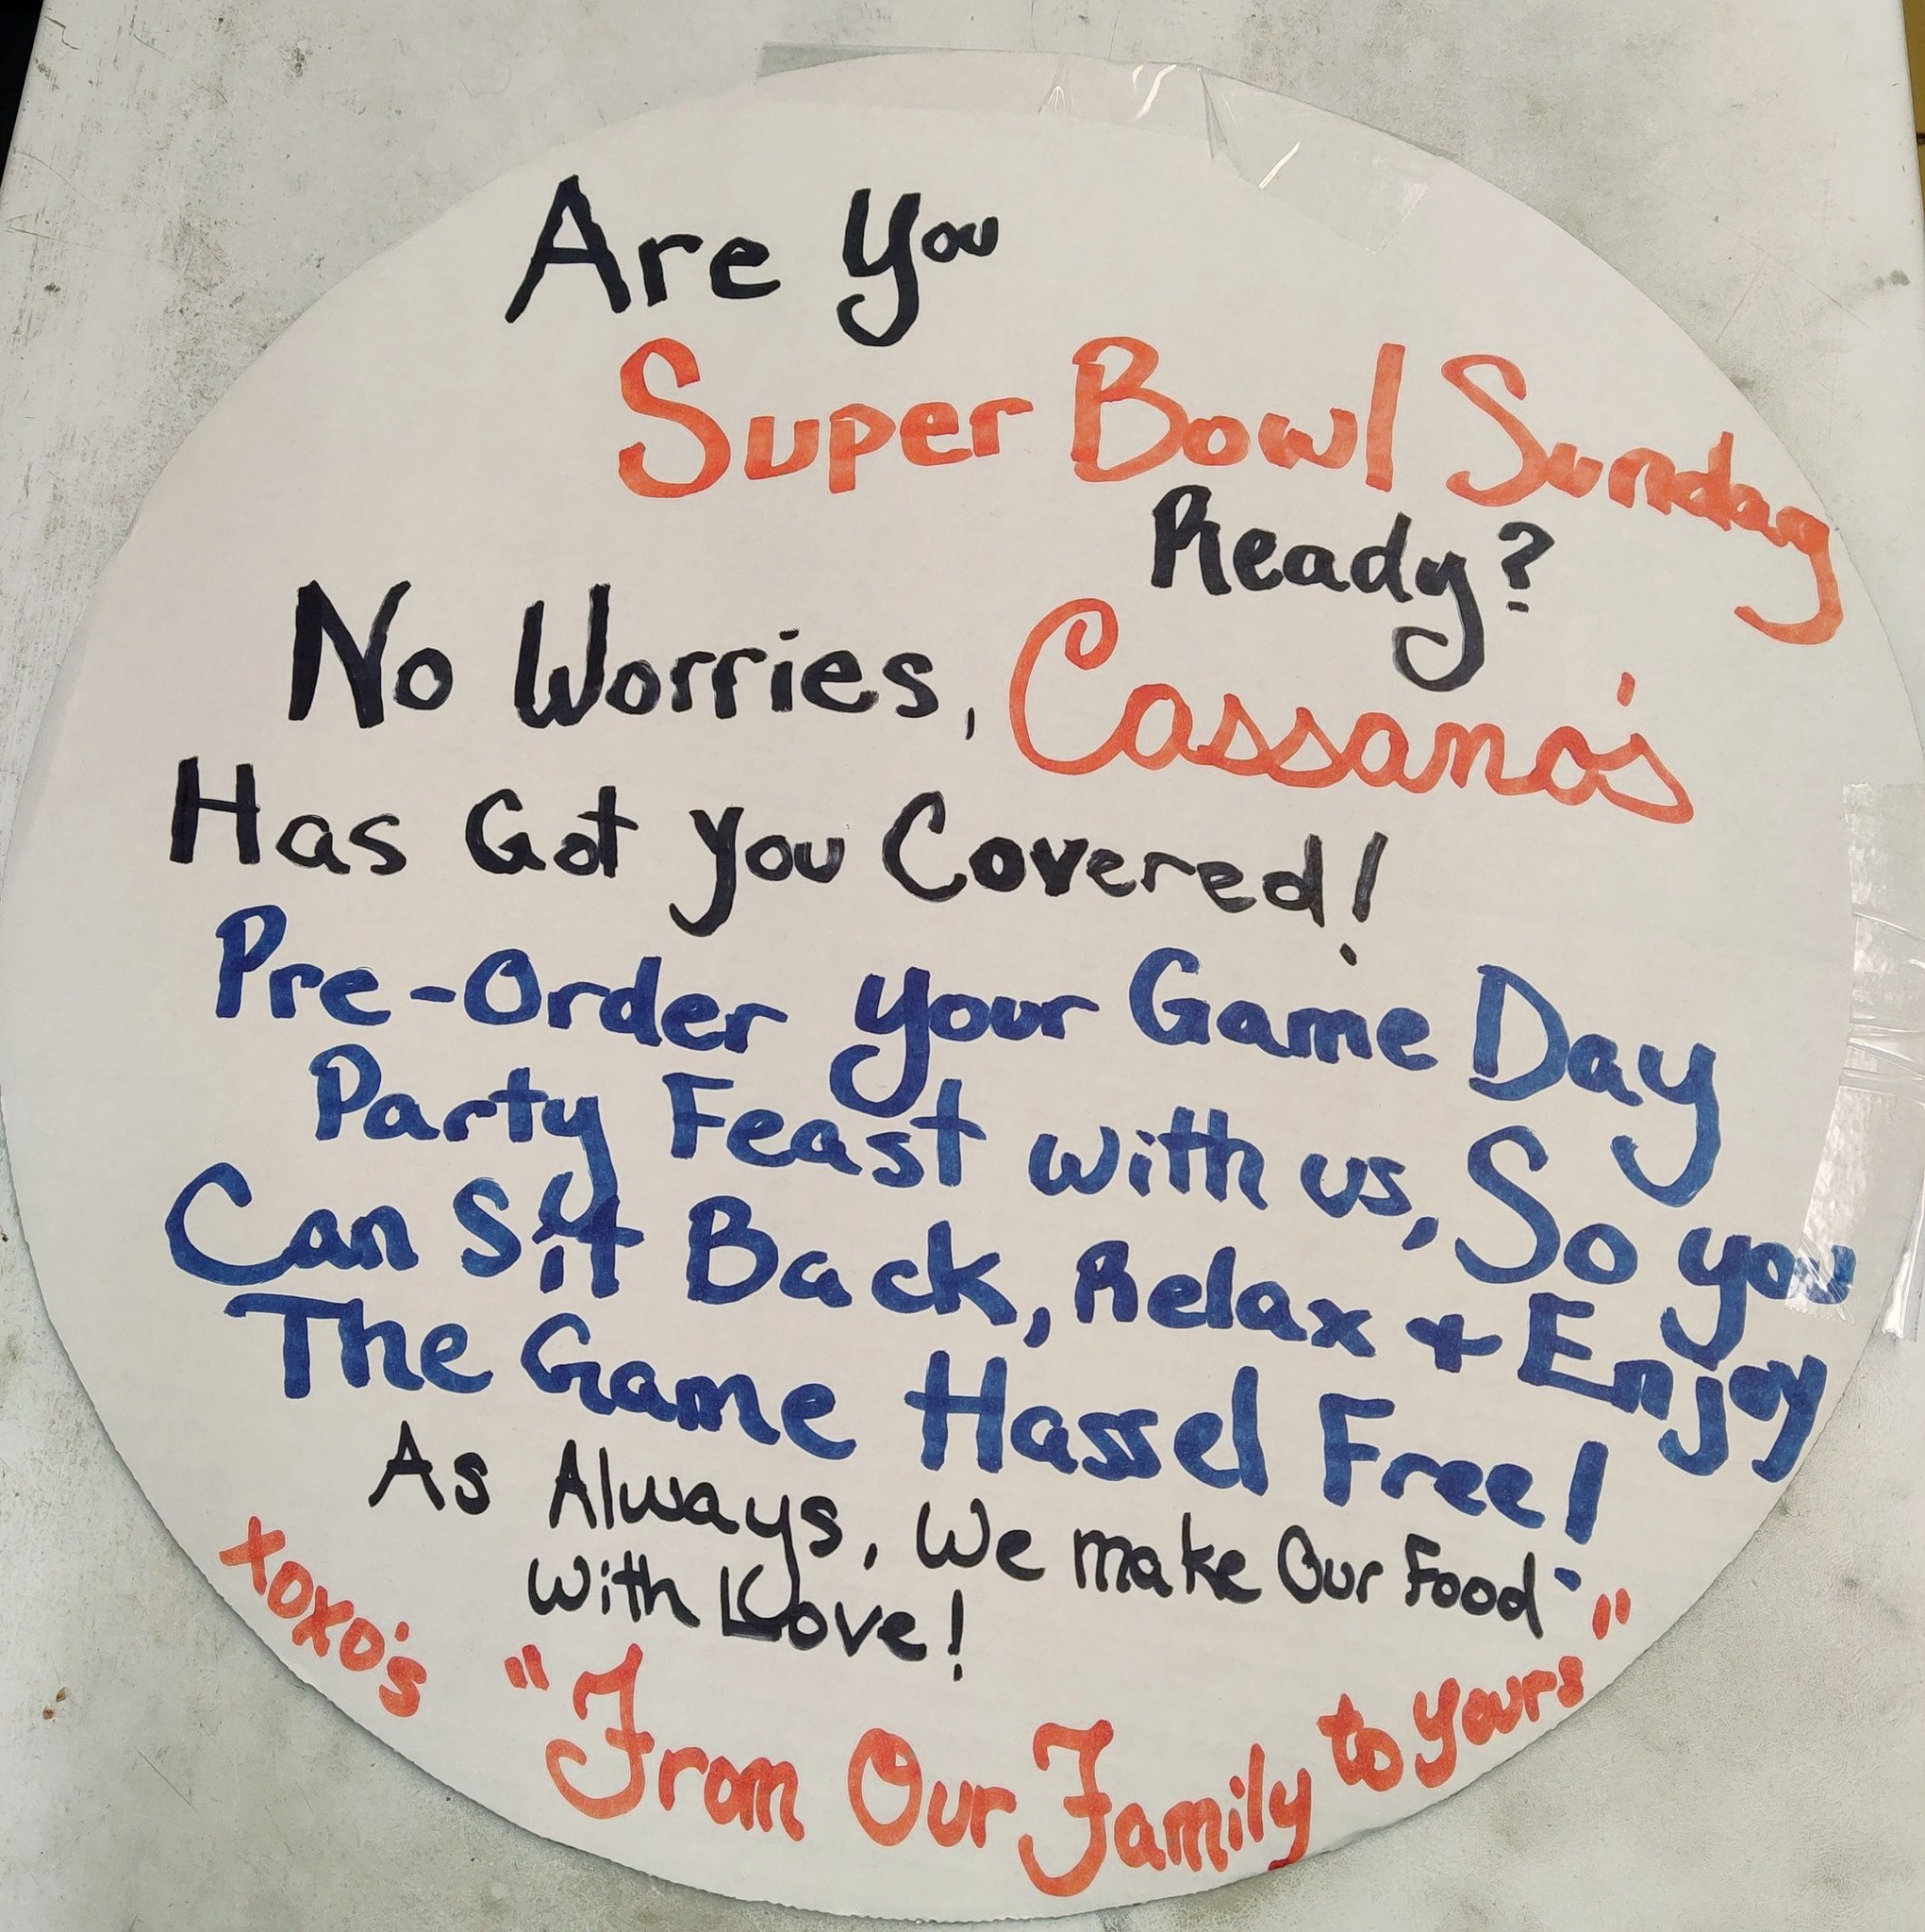 Are You
Super Bowl Sunday
Ready?
No Worries, Cassano's
Has Got you Covered!
Pre-Order your Game Day
Party Feast with us, So you
Can Sit Back, Relax + Enjoy
The Game Hassel Free!
As Always, We make Our Food
With Love!
xoxo's
"From Our Family to yours"